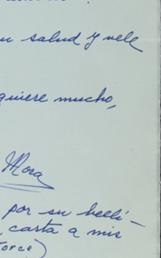 salud y vele
quiere mucho,
Mora
por su belli-
carta a mis